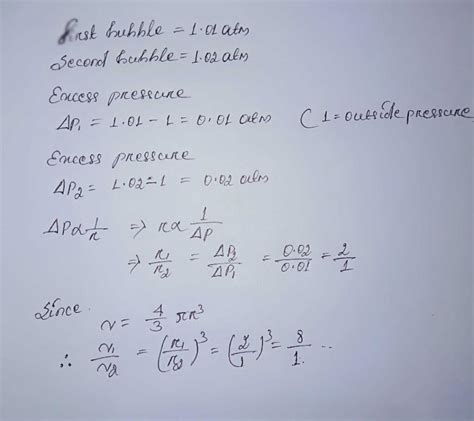 First bubble = 1.01 atm
Second bubble = 1.02 atm
Excess pressure
ΔP₁ = 1.01 - 1 = 0.01 atm (1 = outside pressure
Excess pressure
ΔP₂ = 1.02 - 1 = 0.02 atm
ΔP α 1/r ⇒ r α 1/ΔP
⇒ r₁/r₂ = ΔP₂/ΔP₁ = 0.02/0.01 = 2/1
Since
v = 4/3 πr³
∴ v₁/v₂ = (r₁/r₂)³ = (2/1)³ = 8/1 ..